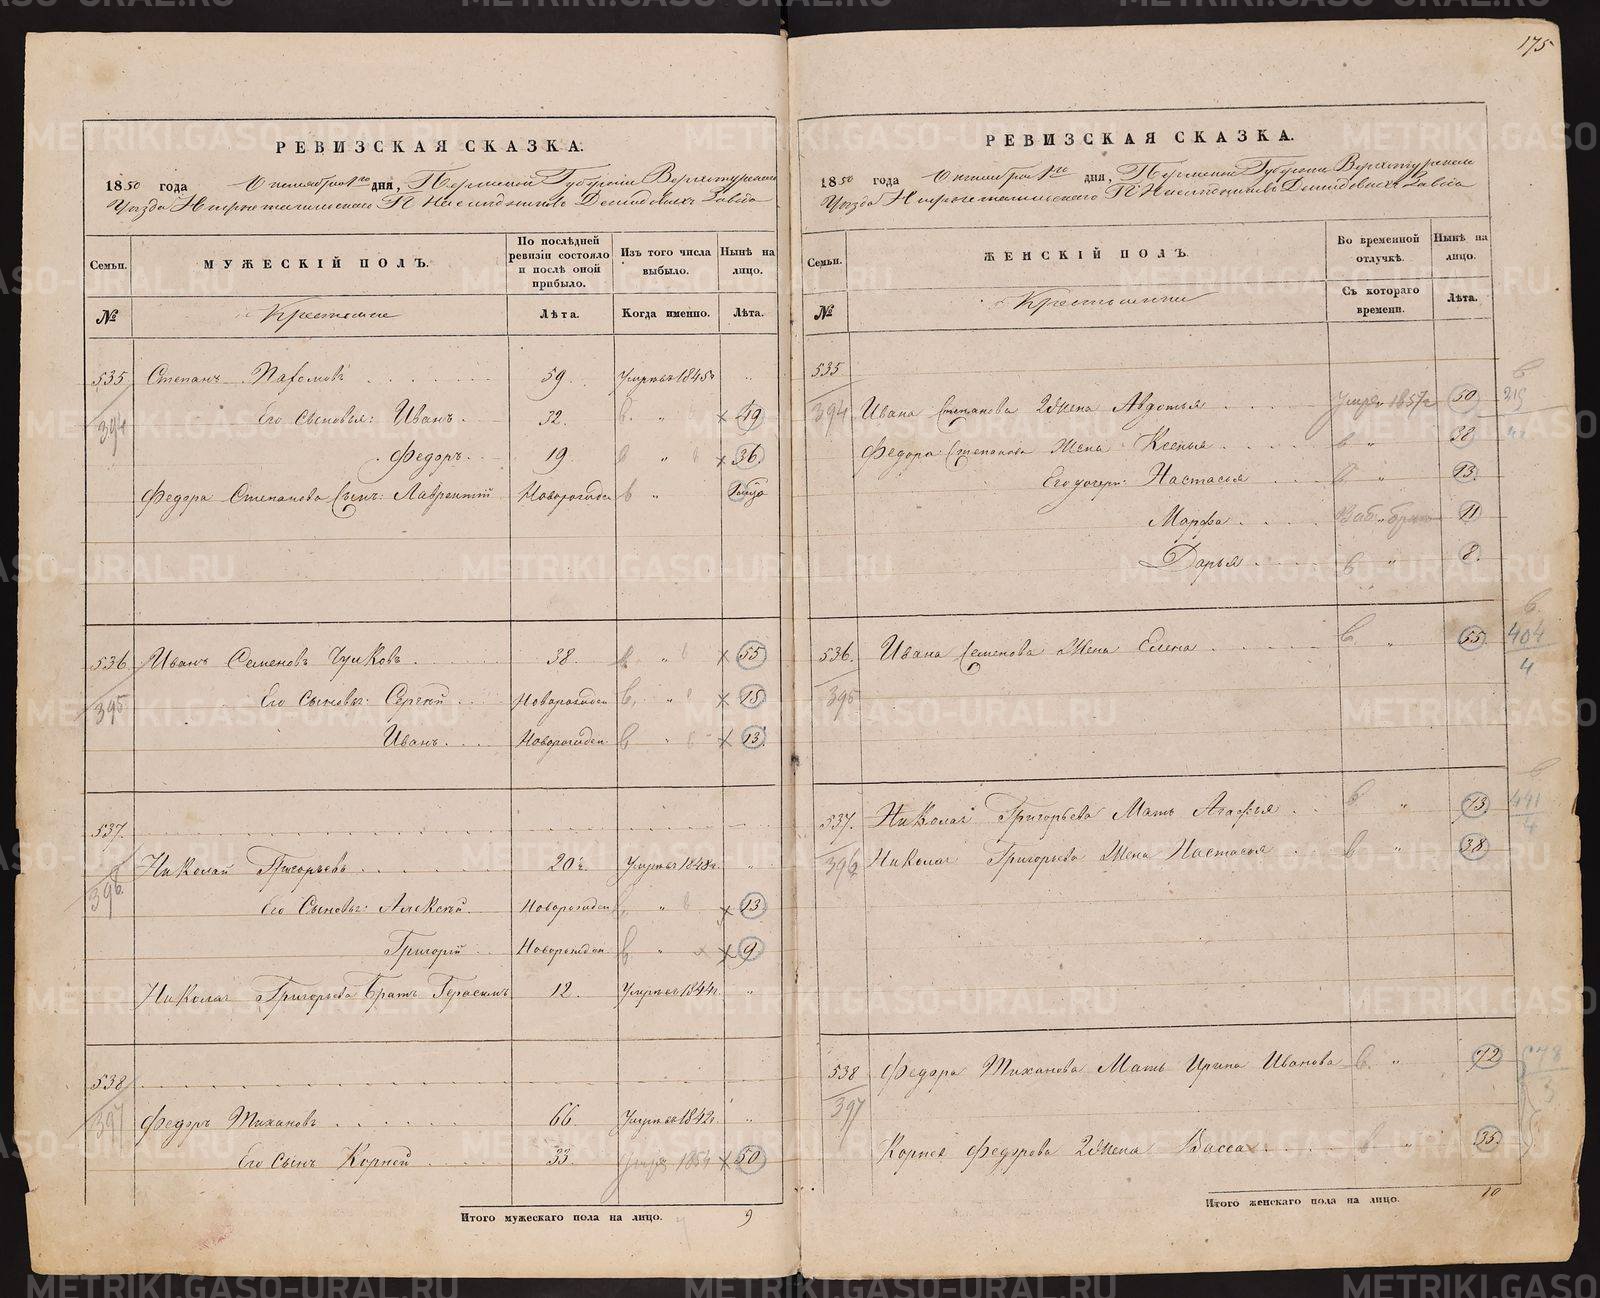 175
РЕВИЗСКАЯ СКАЗКА.
1850 года Октября 1го дня, Пермской Губернии Верхотурскаго
Уезда Нижнетагильскаго Г. Наследниковъ Демидовыхъ Завода
Семьи.
МУЖЕСКІЙ ПОЛЪ.
По послѣдней ревизіи состояло и послѣ оной прибыло.
Изъ того числа выбыло.
Нынѣ на лицо.
№
Крестьяне
Лѣта.
Когда именно.
Лѣта.
535 Степанъ Пахомовъ 59. Умръ въ 1845г „
394 Его Сыновья: Иванъ. 32. в „ х 49
Федоръ. 19. в „ х 36.
Федора Степанова Сынъ: Лаврентий Новорожден в „
536. Иванъ Семеновъ Чунковъ 38. в „ х 55
395 Его Сыновья: Сергей Новорожден в „ х 15
Иванъ. Новорожден в „ х 13.
537.
396. Николай Григорьевъ 20½. Умръ въ 1848г. „
Его Сыновья: Алексей. Новорожден „ х 13
Григорій Новорожден в „ х 9
Николая Григорьева Братъ Герасимъ 12. Умръ въ 1844г. „
538
397 Федоръ Тихановъ 66 Умръ въ 1842г. „
Его Сынъ Корней 33. 1854 х 50
Итого мужескаго пола на лицо. 9
РЕВИЗСКАЯ СКАЗКА.
1850 года Октября 1го дня, Пермской Губернии Верхотурскаго
Уезда Нижнетагильскаго Г. Наследниковъ Демидовыхъ Завода
Семьи.
ЖЕНСКІЙ ПОЛЪ.
Во временной отлучкѣ.
Нынѣ на лицо.
№
Крестьянки
Съ котораго времени.
Лѣта.
535
394 Ивана Степанова 2 Жена Авдотья 1857г 50
Федора Степанова Жена Ксенья в „ 38
Его дочери: Настасья в „ 13.
Марфа „ 11
Дарья в „ 8.
536. Ивана Семенова Жена Елена в „ 55. 404
4
395
537. Николая Григорьева Мать Агафья в „ 73 441
4
396 Николая Григорьева Жена Настасья в „ 38
538 Федора Тиханова Мать Ирина Иванова в „ 72
3
397
Корнея Федорова 2 Жена Васса в „ 35.
Итого женскаго пола на лицо. 10
METRIKI.GASO-URAL.RU